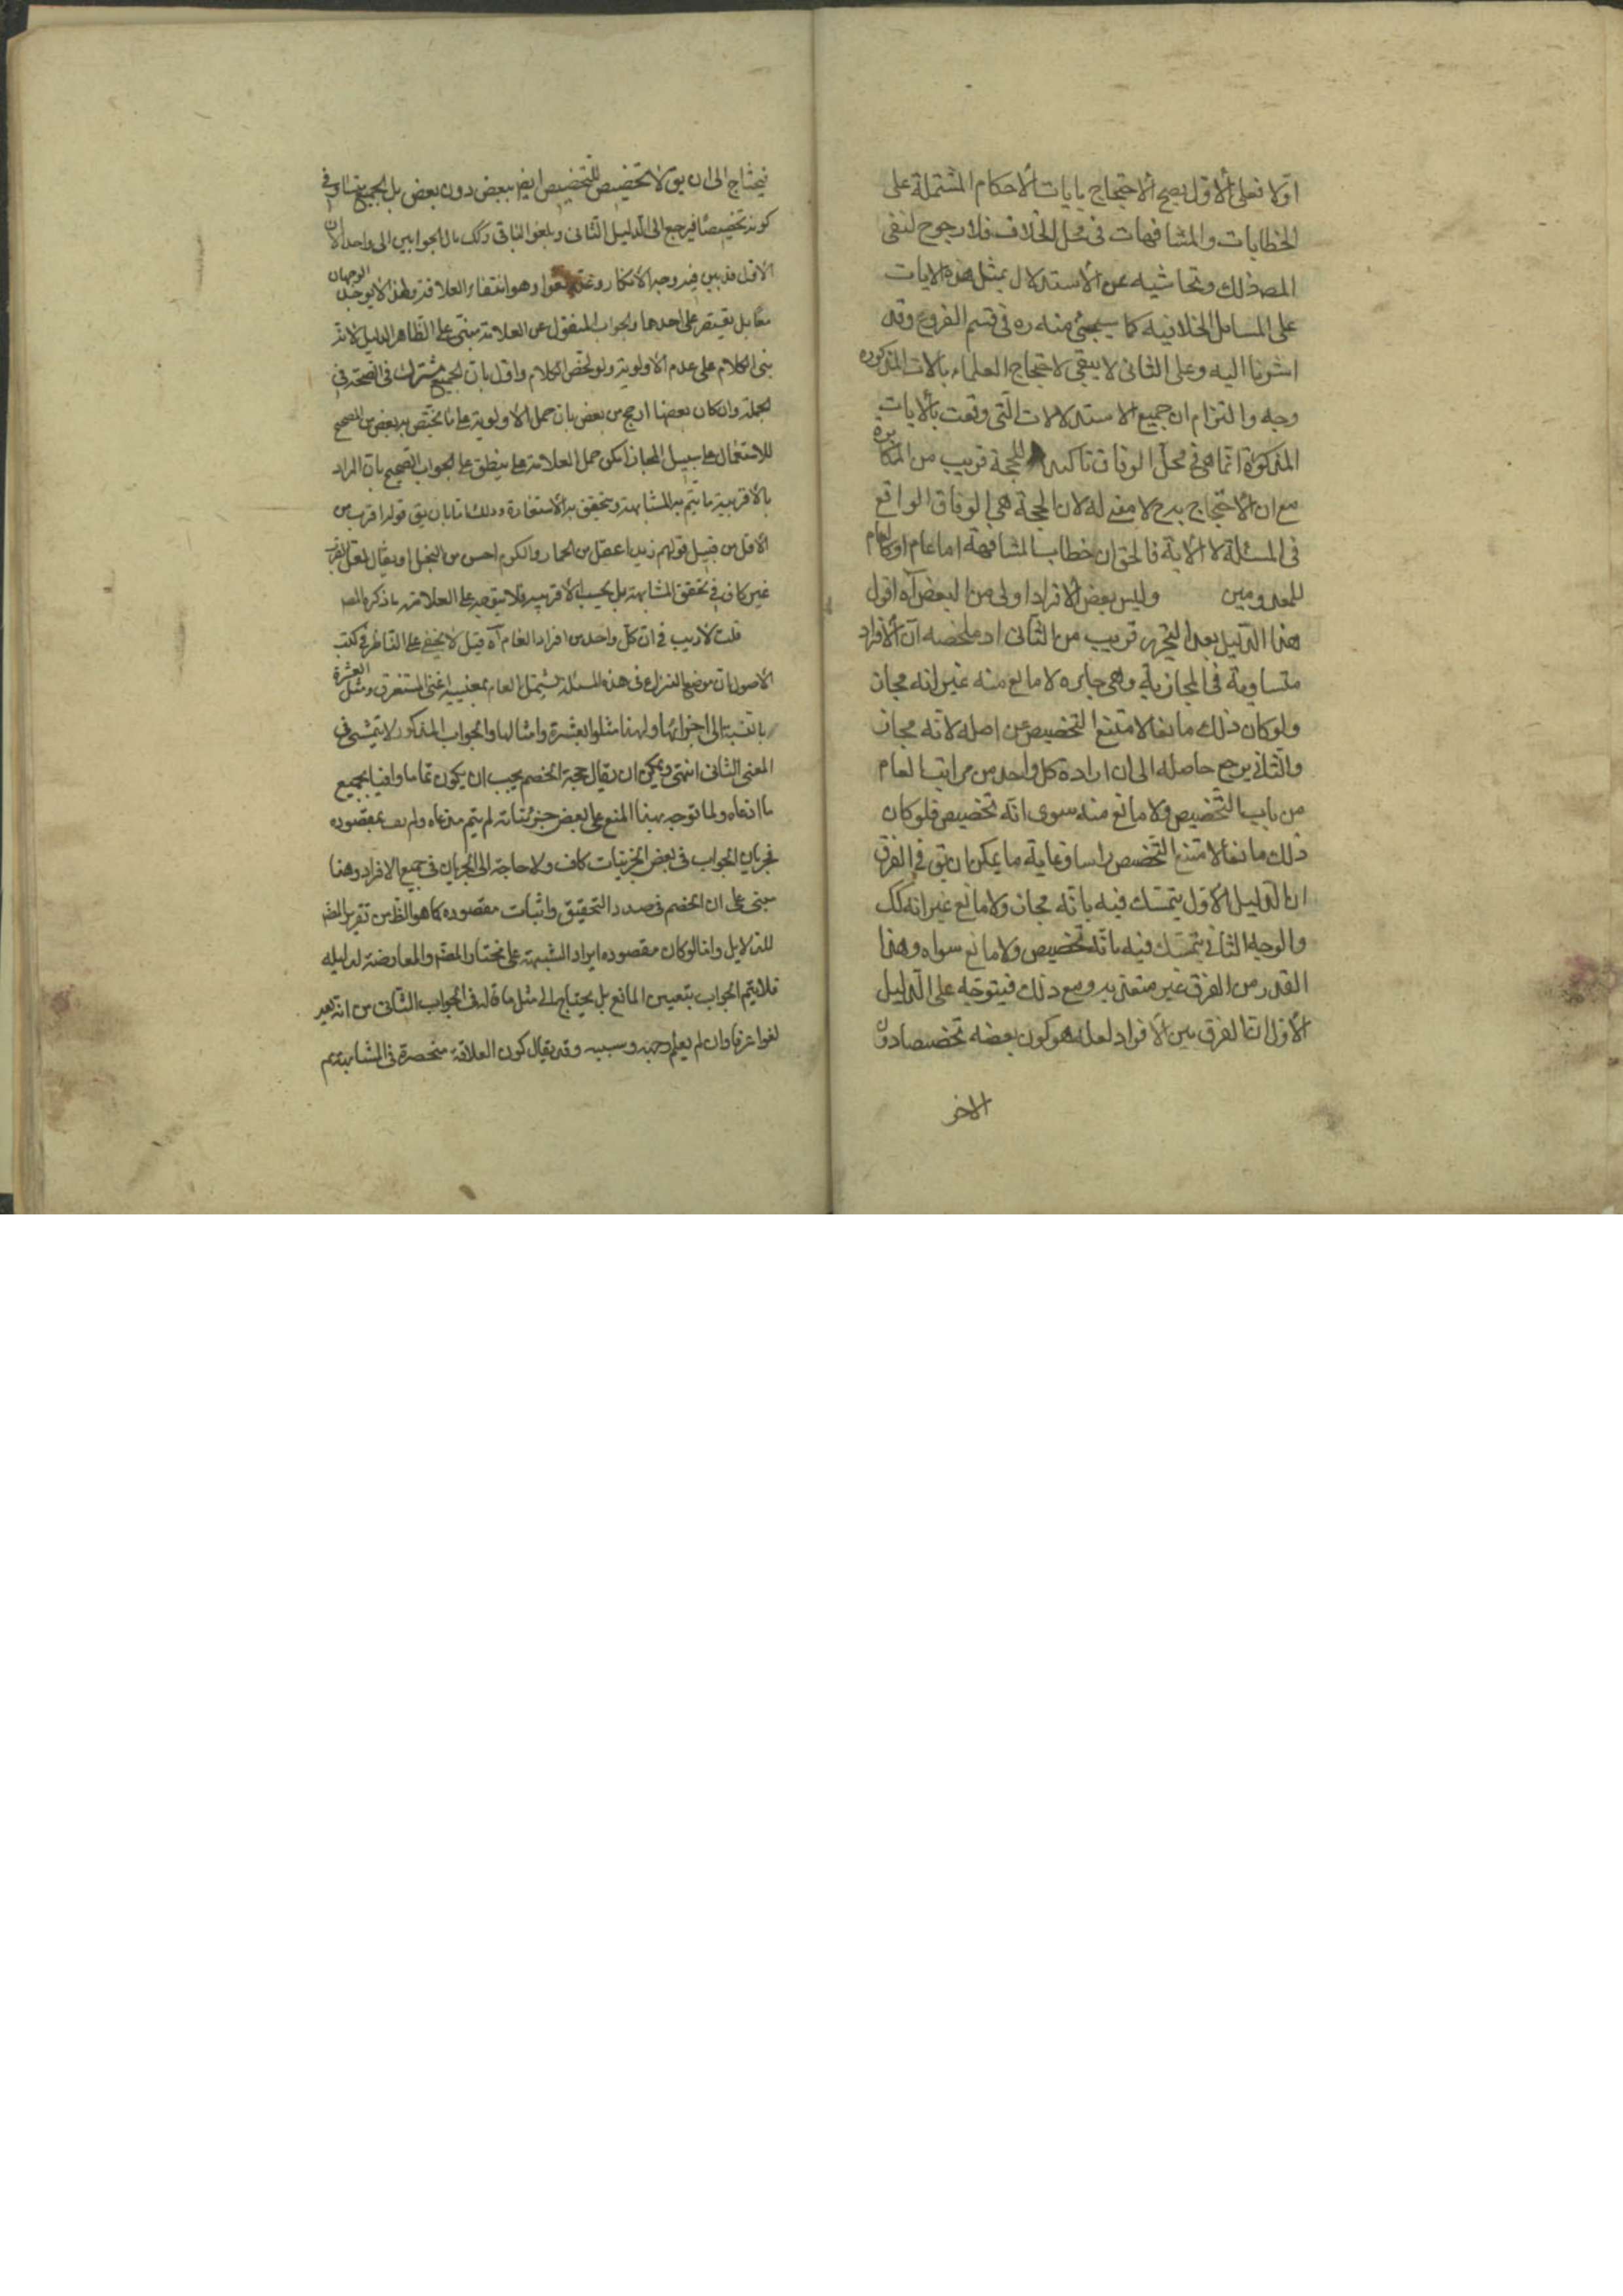 اولا فعلى الاول يصح الاحتجاج بايات الاحكام المشتملة على
الخطابات والمشافهات فى محل الخلاف فلا رجوح لنفى
المصر ذلك وتحاشيه عن الاستدلال بمثل هذه الايات
على المسائل الخلافية كما سيجئ منه ره فى قسم الفروع وقد
اشرنا اليه وعلى الثانى لا يبقى لاحتجاج العلماء بالايات المذكوره
وجه والتزام ان جميع الاستدلالات التى وقعت بالايات
المذكورة انما هى فى محل الوفاق تاكيدا للحجة قريب من المكابرة
مع ان الاحتجاج بدح لا معنى له لان الحجة هى الوفاق الواقع
فى المسئلة لا الاية فالحق ان خطاب المشافهة اما عام او كالعام
للمعدومين وليس بعض الافراد اولى من البعض آه اقول
هذا الدليل بعد التحرير قريب من الثانى اذ ملخصه ان الافراد
متساوية فى المجازية وهى جايزه لا مانع منه غير انه مجاز
ولو كان ذلك مانعا لامتنع التخصيص من اصله لانه مجاز
والثانى يرجع حاصله الى ان ارادة كل واحد من مراتب العام
من باب التخصيص ولا مانع منه سوى انه تخصيص فلو كان
ذلك مانعا لامتنع التخصيص راسا وغاية ما يمكن ان يق فى الفرق
ان الدليل الاول يتمسك فيه بانه مجاز ولا مانع غير انه كك
والوجه الثانى يتمسك فيه بانه تخصيص ولا مانع سواه وهذا
القدر من الفرق غير معتد به ومع ذلك فيتوجه على الدليل
الاول ان الفرق بين الافراد لعله هو كون بعضه تخصيصا دون
الاخر
فيحتاج الى ان يق لا تخصيص للتخصيص ايضا ببعض دون بعض بل الجميع متساو فى
كونه تخصيصا فيرجع الى الدليل الثانى ويلغوا الباقى وكك مال الجوابين الى واحد لان
الاول قد بين فيه وجه الانكار وعده لغوا وهو انتفاء العلاقة وهذا لا يوجد الوجهان
مقابل يقتصر على احدهما والجواب المنقول عن العلامة مبنى على الظاهر الدليل لانه
بنى الكلام على عدم الاولوية ولو لخص الكلام واول بان الجميع مشترك فى الصحة فى
الجملة وان كان بعضها ارجح من بعض بان حمل الاولوية على ما يختص به بعض من المصحح
للاستعمال على سبيل المجاز امكن حمل العلامة على ما ينطبق على الجواب الصحيح بان المراد
بالاقربية ما يتم به المشابهة ويتحقق به الاستعارة وذلك اما بان يق قوله اقرب من
الاقل من قبيل قولهم زيد اعقل من الحمار والكرم احسن من البخل او يقال لعل القرب
غير كاف فى تحقق المشابهة بل يجب الاقربية فلا يتوجه على العلامة ما ذكره المص
قلت لا ريب فى ان كل واحد من افراد العام آه قيل لا يخفى على الناظر فى كتب
الاصول بان موضع النزاع فى هذه المسئلة يشتمل العام بمعنييه اعنى المستغرق ومثل العشرة
بالنسبة الى اجزائها ولهذا مثلوا بعشرة وامثالها والجواب المذكور لا يتمشى فى
المعنى الثانى انتهى ويمكن ان يقال حجة الخصم يجب ان يكون تماما وافيا بجميع
ما ادعاه ولما توجه بهذا المنع على بعض جزئياته لم يتم مدعاه ولم يف بمقصوده
فجريان الجواب فى بعض الجزئيات كاف ولا حاجة الى الجريان فى جميع الافراد وهذا
مبنى على ان الخصم فى صدد التحقيق واثبات مقصوده كما هو الظ من تقرير المص
للدلايل واما لو كان مقصوده ايراد الشبهة على مختار المص والمعارضة لدليله
فلا يتم الجواب بتعيين المانع بل يحتاج الى مثل ما قاله فى الجواب الثانى من انه يعد
لغوا عرفا وان لم يعلم وجهه وسببه وقد يقال كون العلاقة منحصرة فى المشابهة مم